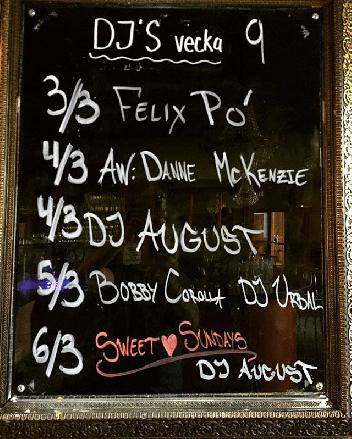 DJ'S vecka 9
3/3 FELIX PO'
4/3 AW: DANNE McKENZIE
4/3 DJ AUGUST
5/3 BOBBY COROLLA DJ URBAL
6/3 SWEET ♥ SUNDAYS
DJ AUGUST